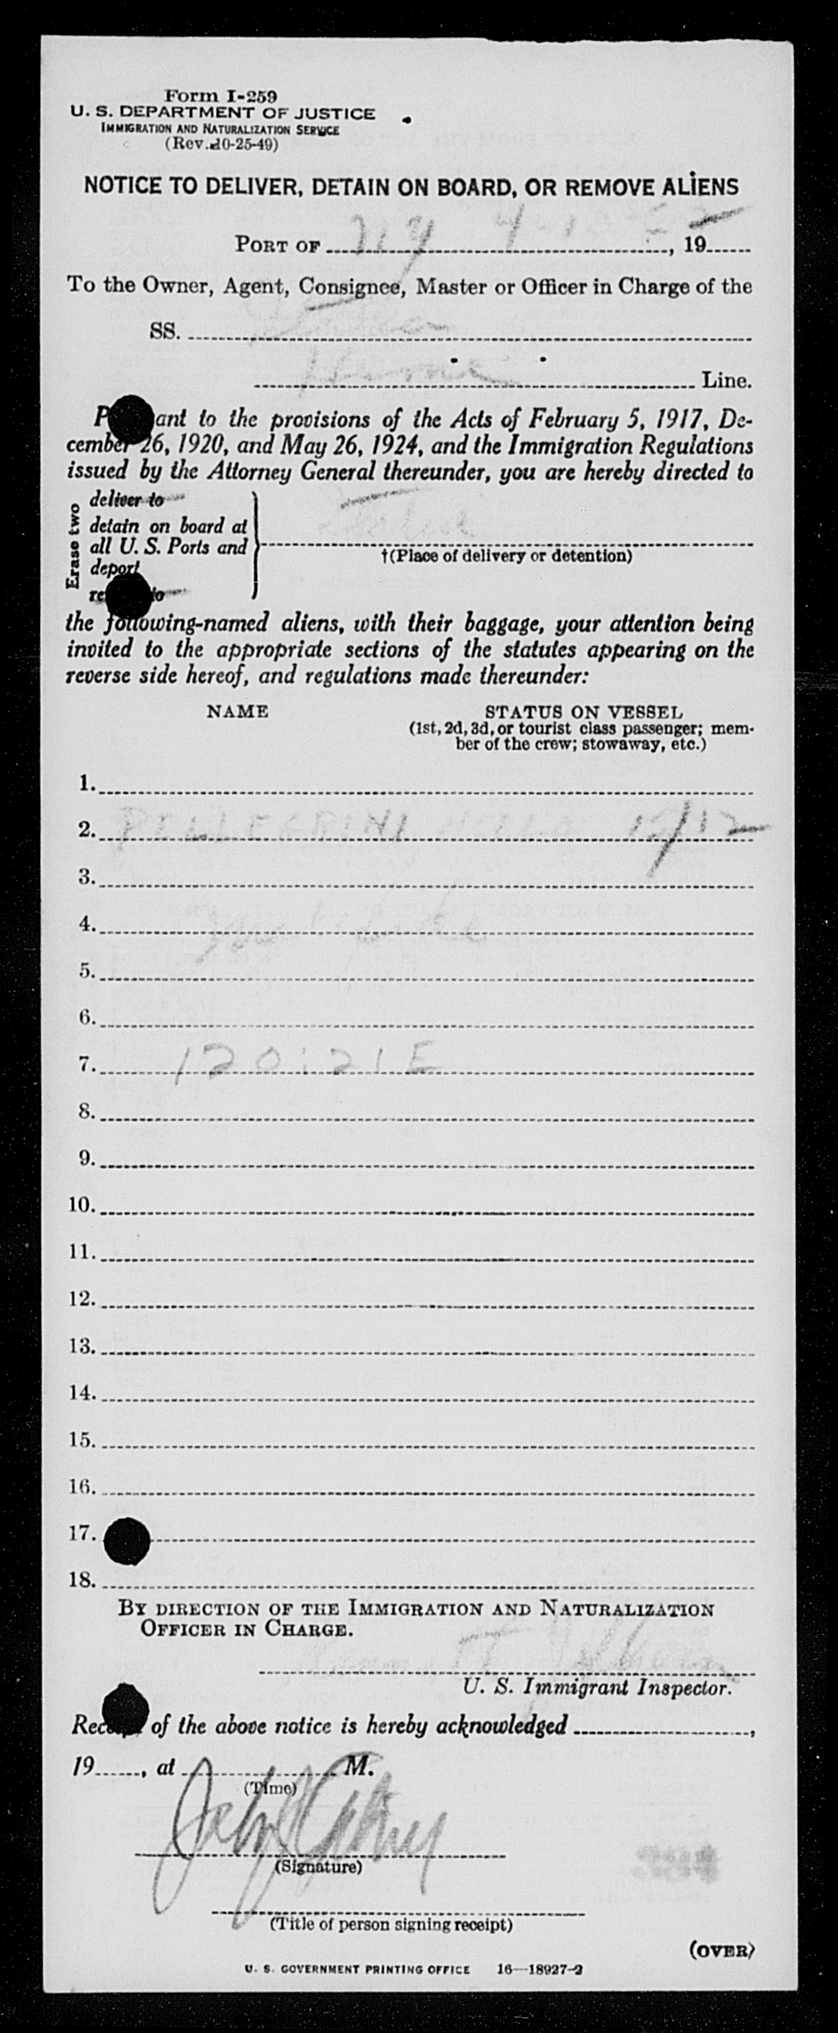 Form I-259
U. S. DEPARTMENT OF JUSTICE
IMMIGRATION AND NATURALIZATION SERVICE
(Rev. 10-25-49)
NOTICE TO DELIVER, DETAIN ON BOARD, OR REMOVE ALIENS
PORT OF NY, 19
To the Owner, Agent, Consignee, Master or Officer in Charge of the
SS.
Home Line.
ant to the provisions of the Acts of February 5, 1917, De-
cember 26, 1920, and May 26, 1924, and the Immigration Regulations
issued by the Attorney General thereunder, you are hereby directed to
Erase two
deliver to
detain on board at
all U. S. Ports and
deport
to
†(Place of delivery or detention)
the following-named aliens, with their baggage, your attention being
invited to the appropriate sections of the statutes appearing on the
reverse side hereof, and regulations made thereunder:
NAME STATUS ON VESSEL
(1st, 2d, 3d, or tourist class passenger; mem-
ber of the crew; stowaway, etc.)
1.
2. PELLEGRINI 12/12
3.
4.
5.
6.
7. 120:21E
8.
9.
10.
11.
12.
13.
14.
15.
16.
17.
18.
BY DIRECTION OF THE IMMIGRATION AND NATURALIZATION
OFFICER IN CHARGE.
U. S. Immigrant Inspector.
Receipt of the above notice is hereby acknowledged,
19, at M.
(Time)
John
(Signature)
(Title of person signing receipt)
(OVER)
U. S. GOVERNMENT PRINTING OFFICE 16—18927-2